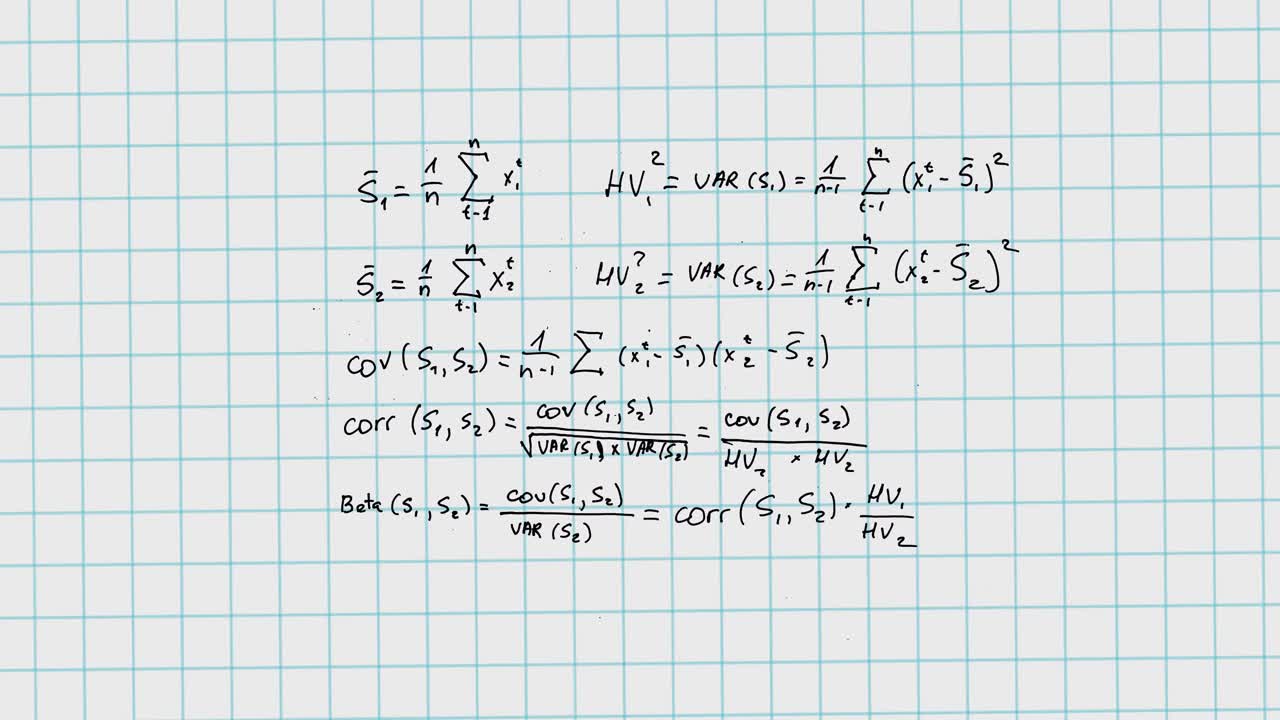 S̄₁ = 1/n ∑ⁿ_{t-1} x₁ᵗ   HV₁² = VAR(S₁) = 1/(n-1) ∑ⁿ_{t-1} (x₁ᵗ - S̄₁)²
S̄₂ = 1/n ∑ⁿ_{t-1} x₂ᵗ   HV₂² = VAR(S₂) = 1/(n-1) ∑ⁿ_{t-1} (x₂ᵗ - S̄₂)²
cov(S₁,S₂) = 1/(n-1) ∑ (x₁ᵗ - S̄₁)(x₂ᵗ - S̄₂)
corr(S₁,S₂) = cov(S₁,S₂)/√(VAR(S₁) x VAR(S₂)) = cov(S₁,S₂)/(HV₂ x HV₂)
Beta(S₁,S₂) = cov(S₁,S₂)/VAR(S₂) = corr(S₁,S₂) · HV₁/HV₂